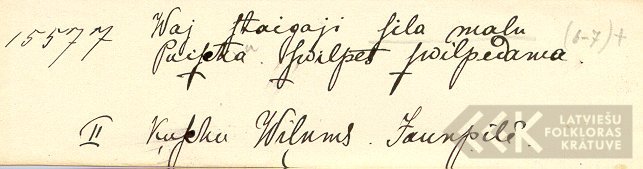 15577 Waj staigaji sila malu (6-7)+
Puischa swilpes swilpedama.
II Kuschu Wilums. Jaunpilī.
LATVIEŠU
FOLKLORAS
KRĀTUVE